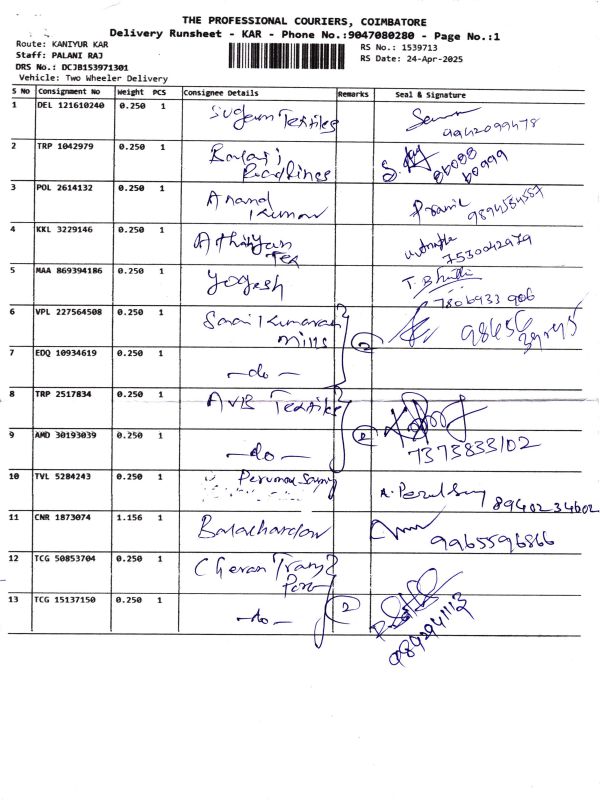 THE PROFESSIONAL COURIERS, COIMBATORE
Delivery Runsheet - KAR - Phone No.:9047080280 - Page No.:1
Route: KANIYUR KAR
RS No.: 1539713
Staff: PALANI RAJ
RS Date: 24-Apr-2025
DRS No.: DCJB153971301
Vehicle: Two Wheeler Delivery
S No Consignment No Weight PCS Consignee Details Remarks Seal & Signature
1 DEL 121610240 0.250 1 Textiles
9942099478
2 TRP 1042979 0.250 1 Balaji
3 POL 2614132 0.250 1 Anand
Kumar
4 KKL 3229146 0.250 1
Tex
7530042979
5 MAA 869394186 0.250 1 Yogesh
6 VPL 227564508 0.250 1 Kumaran
Mills
2
7 EDQ 10934619 0.250 1 -do-
8 TRP 2517834 0.250 1 AVB Textiles
9 AMD 30193039 0.250 1 -do-
7373833102
10 TVL 5284243 0.250 1 Perumal Samy
8940234602
11 CNR 1873074 1.156 1
9965596866
12 TCG 50853704 0.250 1 Cheran
13 TCG 15137150 0.250 1 -do- 2